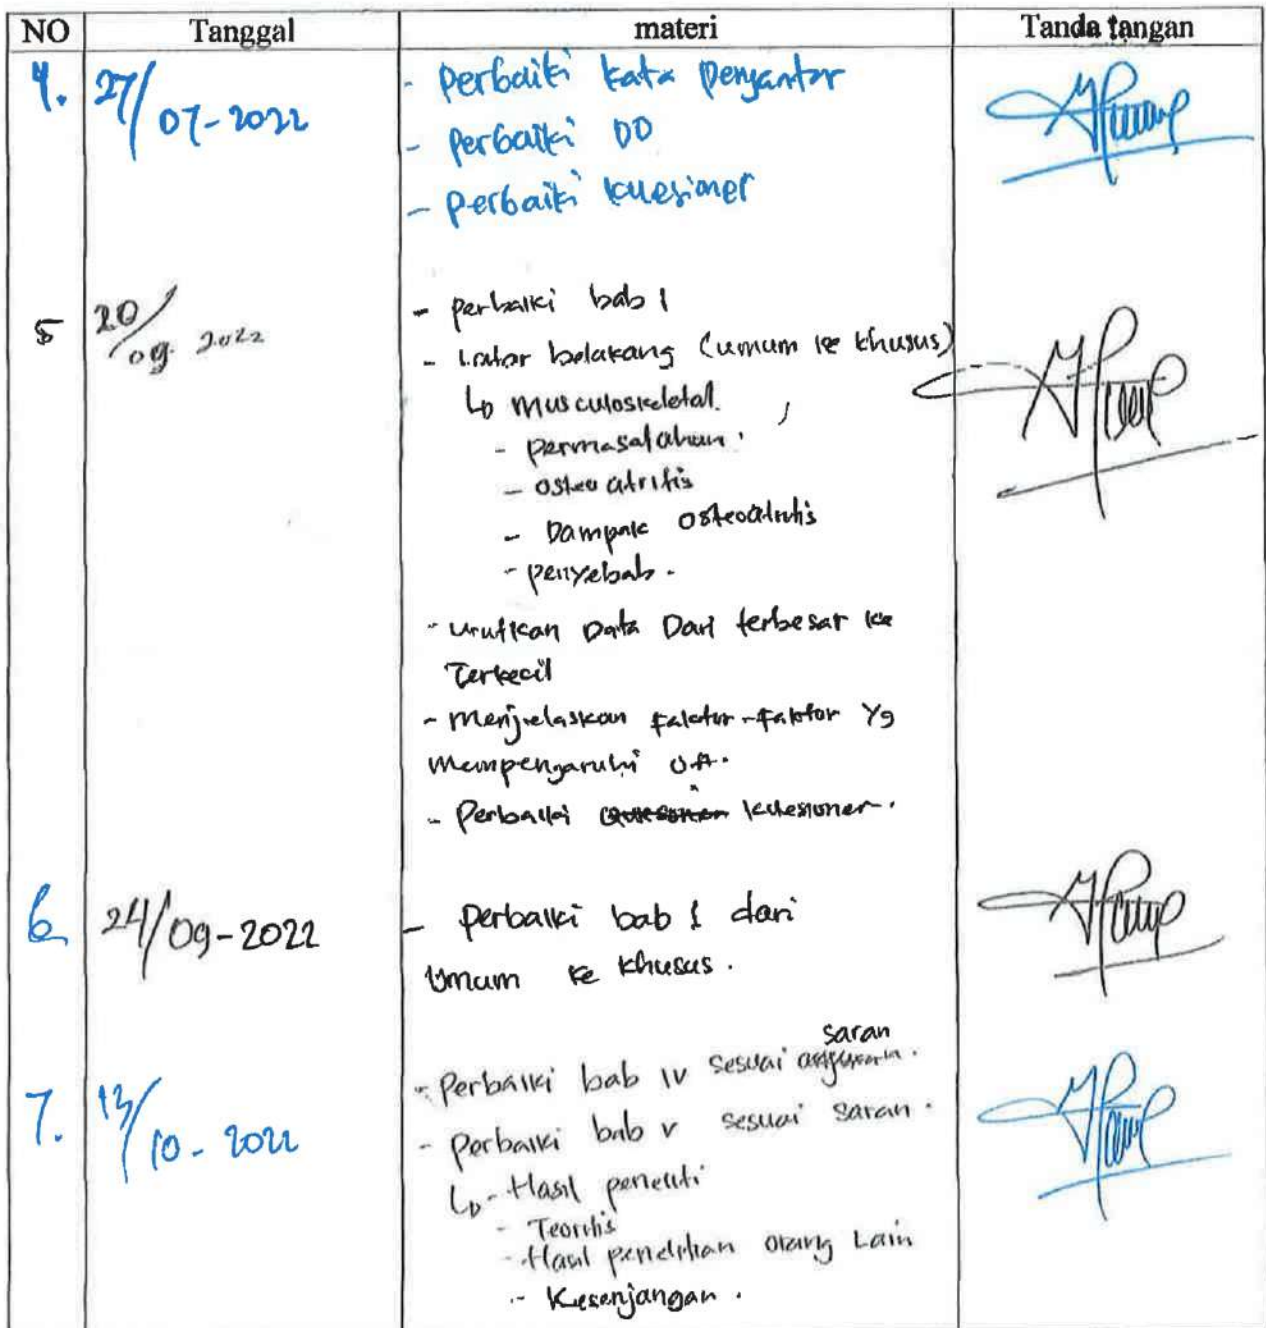 NO Tanggal materi Tanda tangan
4. 27/07-2022 - Perbaiki kata pengantar
- Perbaiki DO
- Perbaiki kuesioner
5 20/09 2022 - perbaiki bab 1
- Latar belakang (umum ke khusus)
↳ Musculoskeletal.
- permasalahan.
- osteoatritis
- Dampak osteoatritis
- penyebab.
- Urutkan Data Dari terbesar ke
Terkecil
- Menjelaskan faktor-faktor Yg
mempengaruhi OA.
- Perbaiki kuesioner.
6 24/09-2022 - Perbaiki bab 1 dari
Umum ke khusus.
saran
7. 13/10-2022 - Perbaiki bab IV sesuai
- Perbaiki bab V sesuai saran.
↳ - Hasil peneliti
- Teoritis
- Hasil penelitian orang Lain
- Kesenjangan.